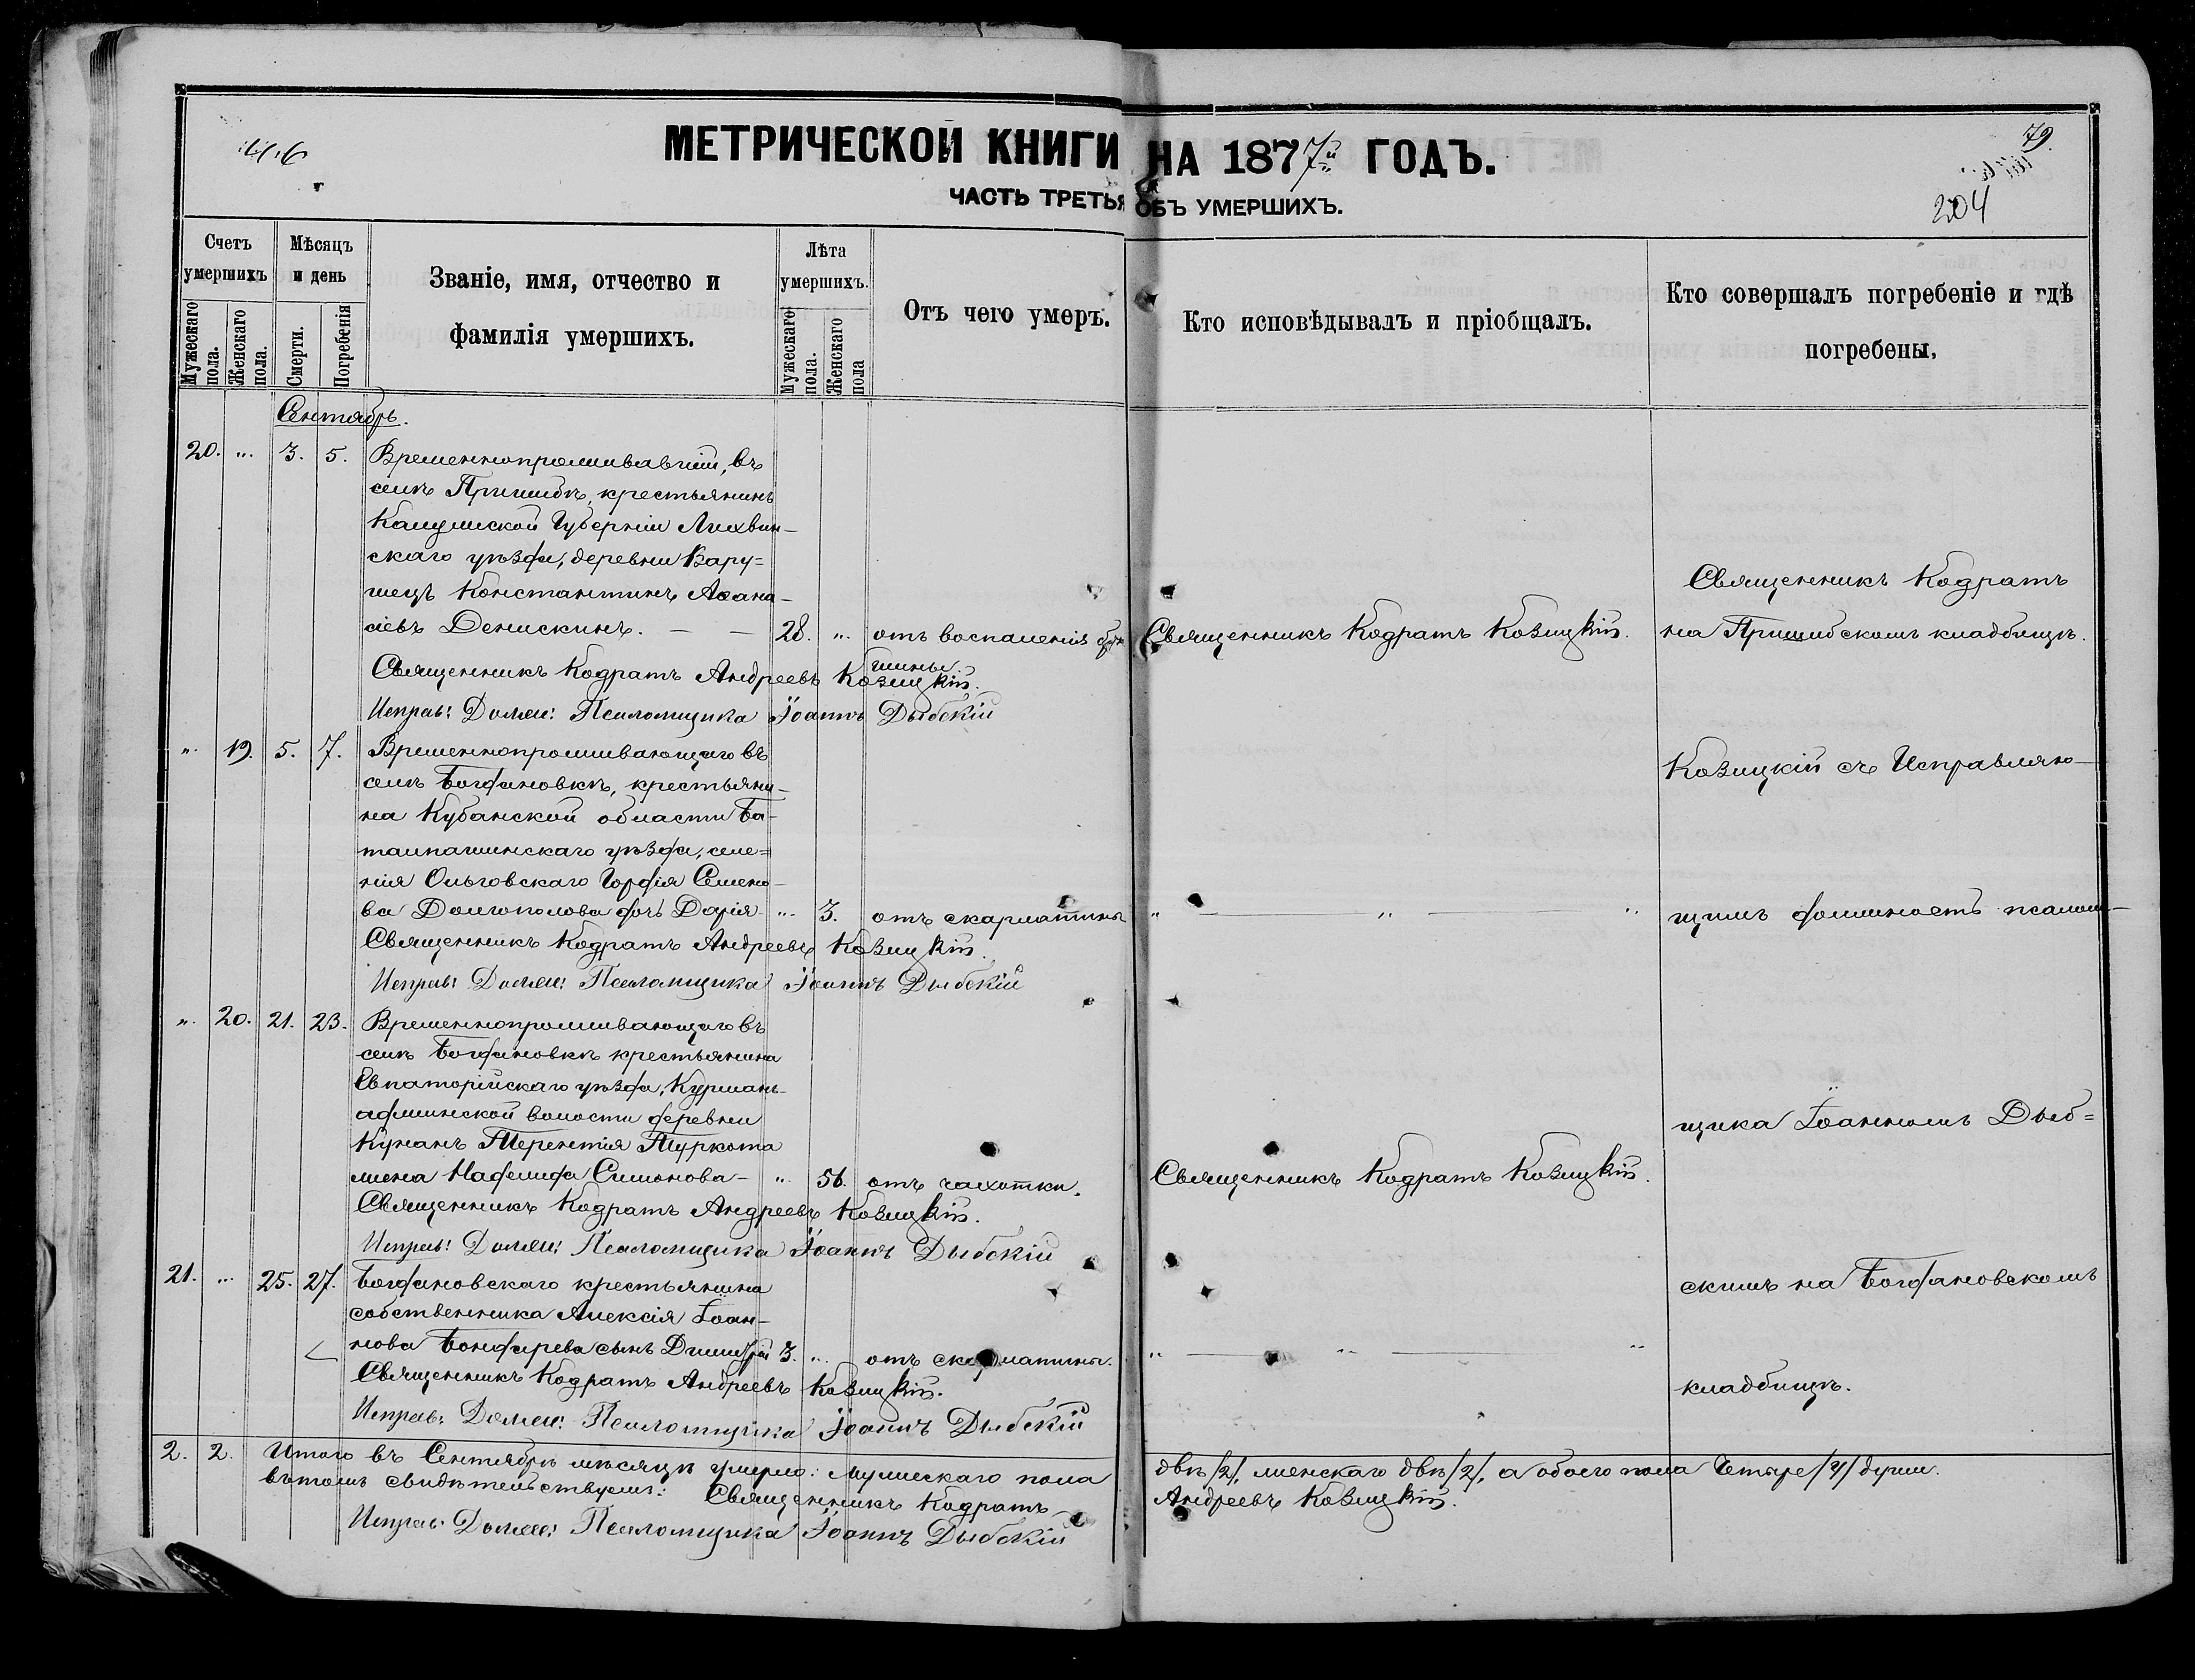 МЕТРИЧЕСКОЙ КНИГИ НА 1877й ГОДЪ.
79.
204
ЧАСТЬ ТРЕТЬЯ ОБЪ УМЕРШИХЪ.
Счетъ умершихъ
Мужескаго пола.
Женскаго пола.
Мѣсяцъ и день
Смерти.
Погребенія
Званіе, имя, отчество и
фамилія умершихъ.
Лѣта умершихъ.
Мужескаго пола.
Женскаго пола
Отъ чего умеръ.
Кто исповѣдывалъ и пріобщалъ.
Кто совершалъ погребеніе и гдѣ
погребены.
Сентябрь.
20. „. 3. 5. Временнопроживавшій, въ
селѣ Пришибѣ, крестьянинъ
Калужской Губерніи Лихвин-
скаго уѣзда, деревни Вару=
шецъ Константинъ Аѳана-
сіевъ Денискинъ. — — 28. „. отъ воспаленія
Священникъ Кодратъ Козицкій.
Священникъ Кодратъ
на Пришибскомъ кладбищѣ.
Священникъ Кодратъ Андреевъ Козицкій.
Исправ: Должн: Псаломщика Іоаннъ Дыбскій
„. 19. 5. 7. Временнопроживающаго въ
селѣ Богдановкѣ, крестьяни-
на Кубанской области Ба-
талпашинскаго уѣзда, селе=
нія Ольговскаго Гордія Семено-
ва Долгополова дочь Дарія „. 3. отъ скарлатины
„ — „ — „
Козицкій съ Исправляю-
щимъ должность псалом-
Священникъ Кодратъ Андреевъ Козицкій.
Исправ: Должн: Псаломщика Іоаннъ Дыбскій
„. 20. 21. 23. Временнопроживающаго въ
селѣ Богдановкѣ крестьянина
Евпаторійскаго уѣзда, Курманъ-
аджинской волости деревни
Кунанъ Терентія Туркота
жена Надежда Симонова — „. 56. отъ чахотки.
Священникъ Кодратъ Козицкій.
щика Іоанномъ Дыб=
Священникъ Кодратъ Андреевъ Козицкій.
Исправ: Должн: Псаломщика Іоаннъ Дыбскій
21. „. 25. 27. Богдановскаго крестьянина
собственника Алексія Іоан-
нова Бондарева сынъ Димитрій 3. „. отъ скарлатины.
„ — „ — „
скимъ на Богдановскомъ
кладбищѣ.
Священникъ Кодратъ Андреевъ Козицкій.
Исправ: Должн: Псаломщика Іоаннъ Дыбскій
2. 2. Итого въ Сентябрѣ мѣсяцѣ умерло: мужескаго пола двѣ /2/, женскаго двѣ /2/, а обоего пола Четыре /4/ души.
въ томъ свидѣтельствуемъ: Священникъ Кодратъ Андреевъ Козицкій.
Исправ: Должн: Псаломщика Іоаннъ Дыбскій